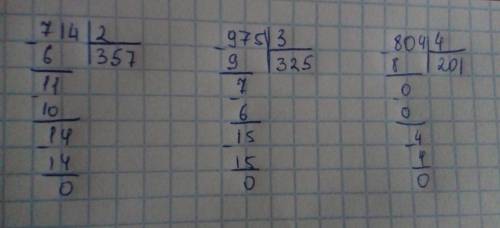 714 2
6 357
11
10
14
14
0
975 3
9 325
7
6
15
15
0
804 4
8 201
0
0
4
4
0